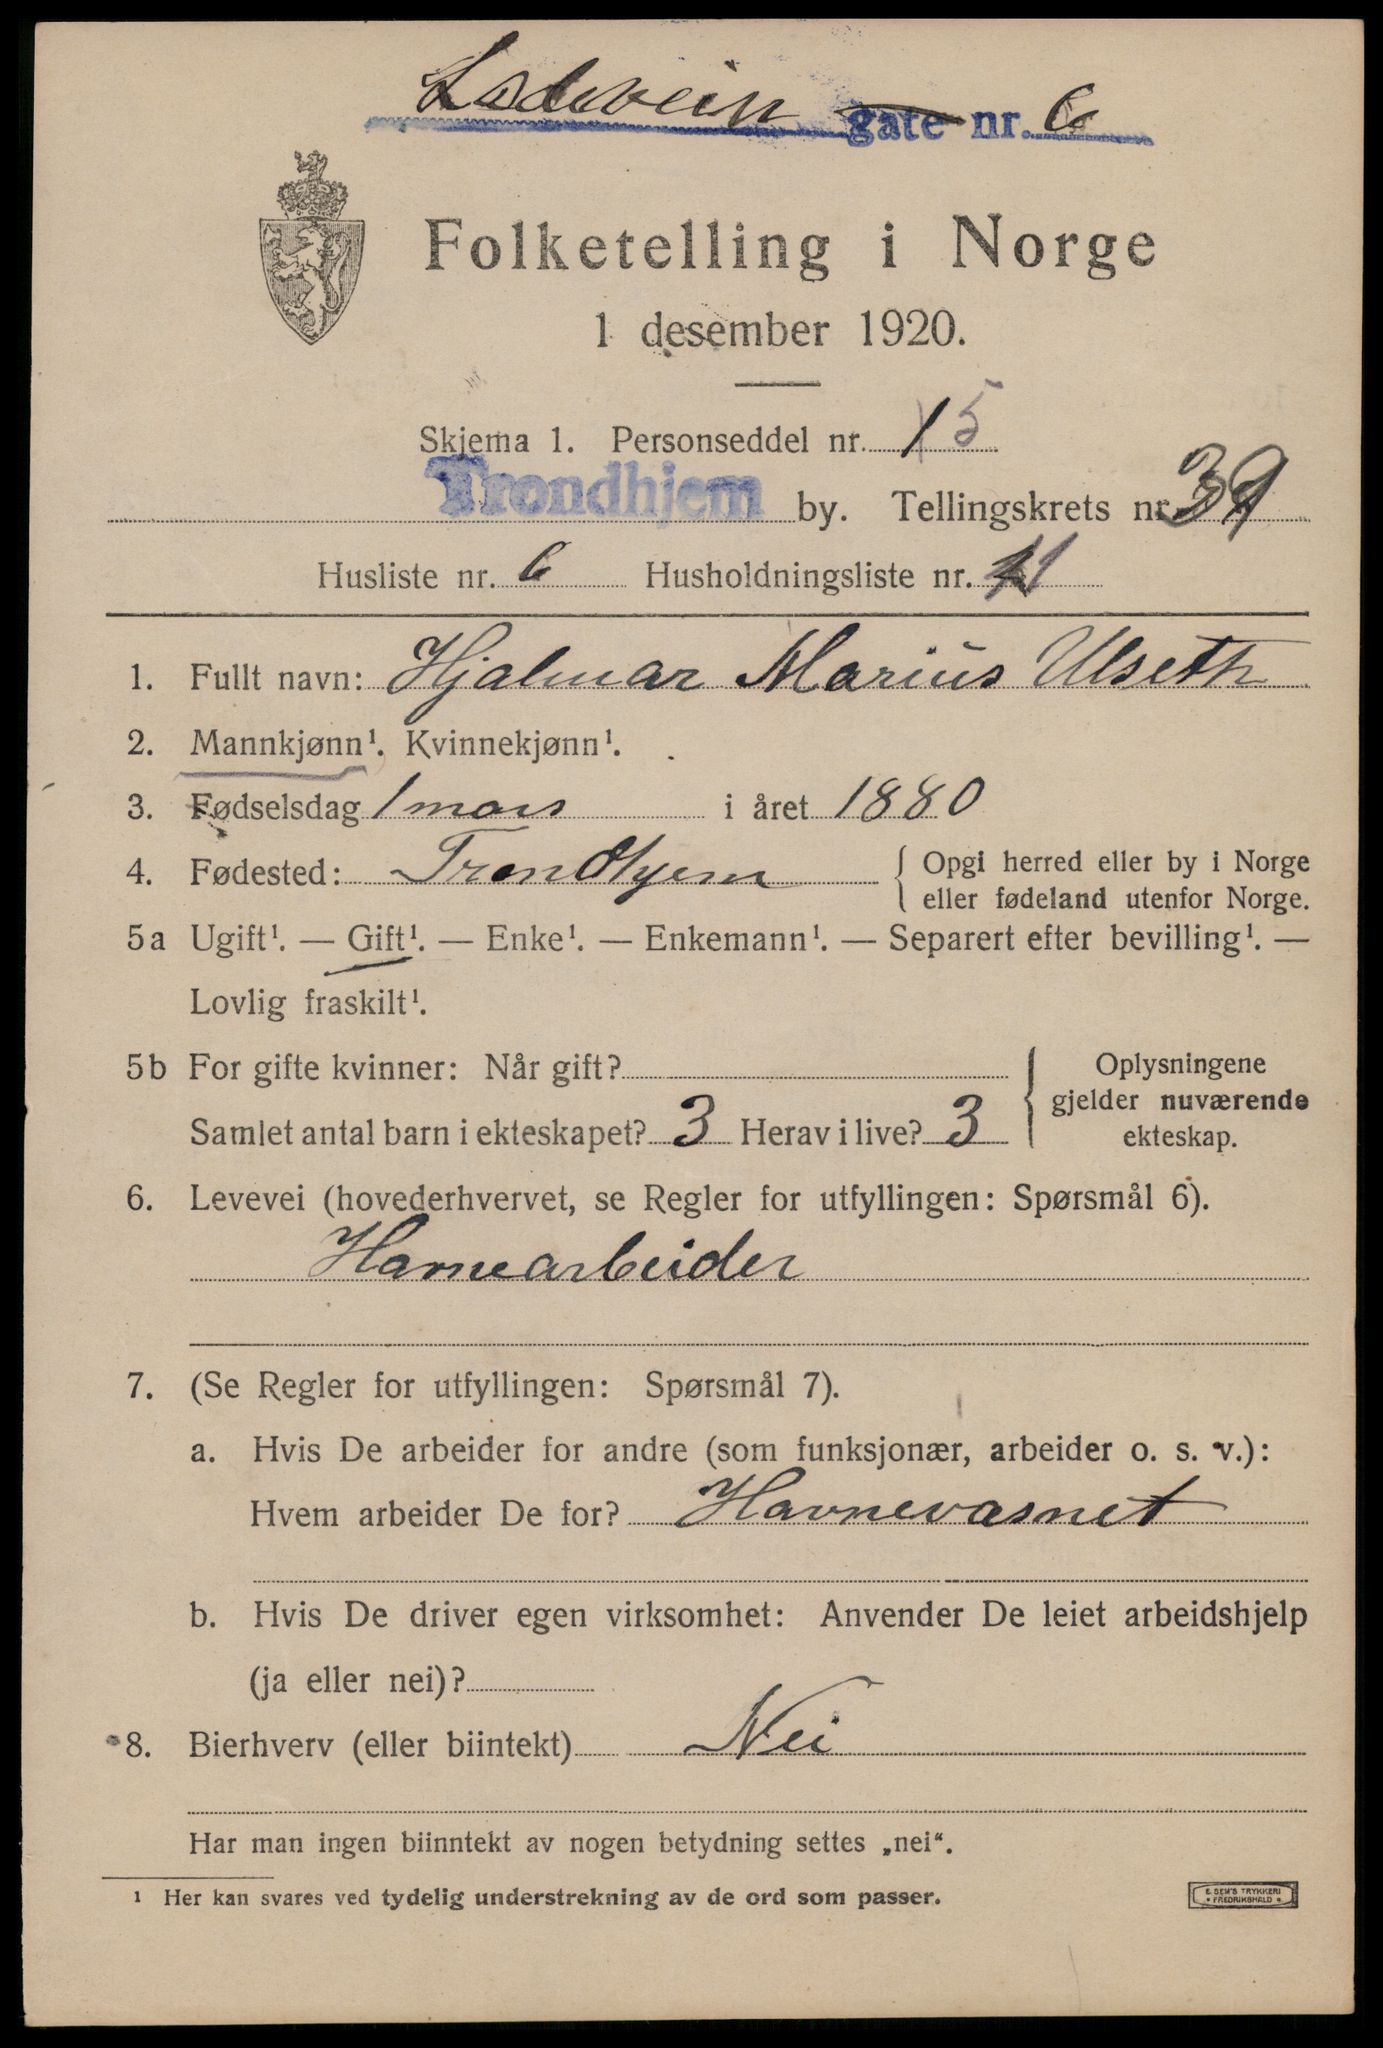 Ladeveien gate nr. 6
Folketelling i Norge
1 desember 1920.
Skjema 1. Personseddel nr. 15
Trondhjem by. Tellingskrets nr. 39
Husliste nr. 6 Husholdningsliste nr. 11
1. Fullt navn: Hjalmar Marius Ulseth
2. Mannkjønn¹. Kvinnekjønn¹.
3. Fødselsdag 1 mars i året 1880
4. Fødested: Trondhjem { Opgi herred eller by i Norge
eller fødeland utenfor Norge.
5a Ugift¹. — Gift¹. — Enke¹. — Enkemann¹. — Separert efter bevilling¹. —
Lovlig fraskilt¹.
5b For gifte kvinner: Når gift?
Samlet antal barn i ekteskapet? 3 Herav i live? 3
Oplysningene
gjelder nuværende
ekteskap.
6. Levevei (hovederhvervet, se Regler for utfyllingen: Spørsmål 6).
Havnearbeider
7. (Se Regler for utfyllingen: Spørsmål 7).
a. Hvis De arbeider for andre (som funksjonær, arbeider o. s. v.):
Hvem arbeider De for? Havnevæsnet
b. Hvis De driver egen virksomhet: Anvender De leiet arbeidshjelp
(ja eller nei)?
8. Bierhverv (eller biintekt) Nei
Har man ingen biinntekt av nogen betydning settes „nei“.
1 Her kan svares ved tydelig understrekning av de ord som passer.
E. SEM'S TRYKKERI
FREDRIKSHALD